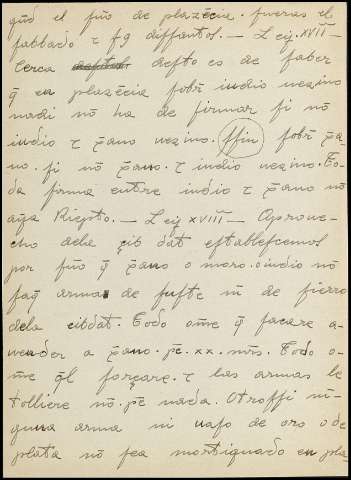 qñd el fúo de plazécia. fueras el
fabbado τ fg diffantos. — Ley. XVII —
Cerca defto es de faber
q̃ en plazécia fobr̃ indio uezino
nadi nõ ha de firmar fi nõ
indio τ x̃ano uezino. ffin fobr̃ x̃a-
no. fi nõ x̃ano. τ indio uezino. To-
da firma entre indio τ x̃ano nõ
aya Riepto. — Ley XVIII — Aproue-
cho dela çib dat eftablefcemos
por fúo q̃ x̃ano o moro. o indio nõ
faq̃ arma de fufte nĩ de fierro
dela cibdat. Todo ome q̃ facare a-
uender a x̃ano. pẽ. xx. mrs. Todo o-
me q̃l forçare. τ las armas le
tolliere nõ. pẽ nada. Otroffi ni-
guna arma ni uafo de oro o de
plata nõ fea mortiguado en pla-